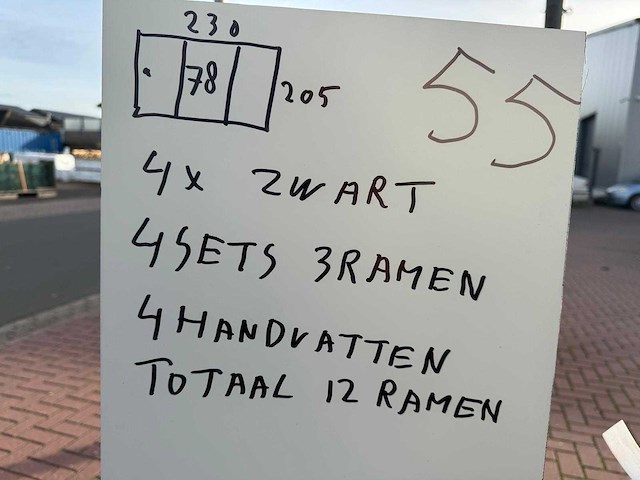 230
78
205
55
4x ZWART
4 SETS 3 RAMEN
4 HANDVATTEN
TOTAAL 12 RAMEN